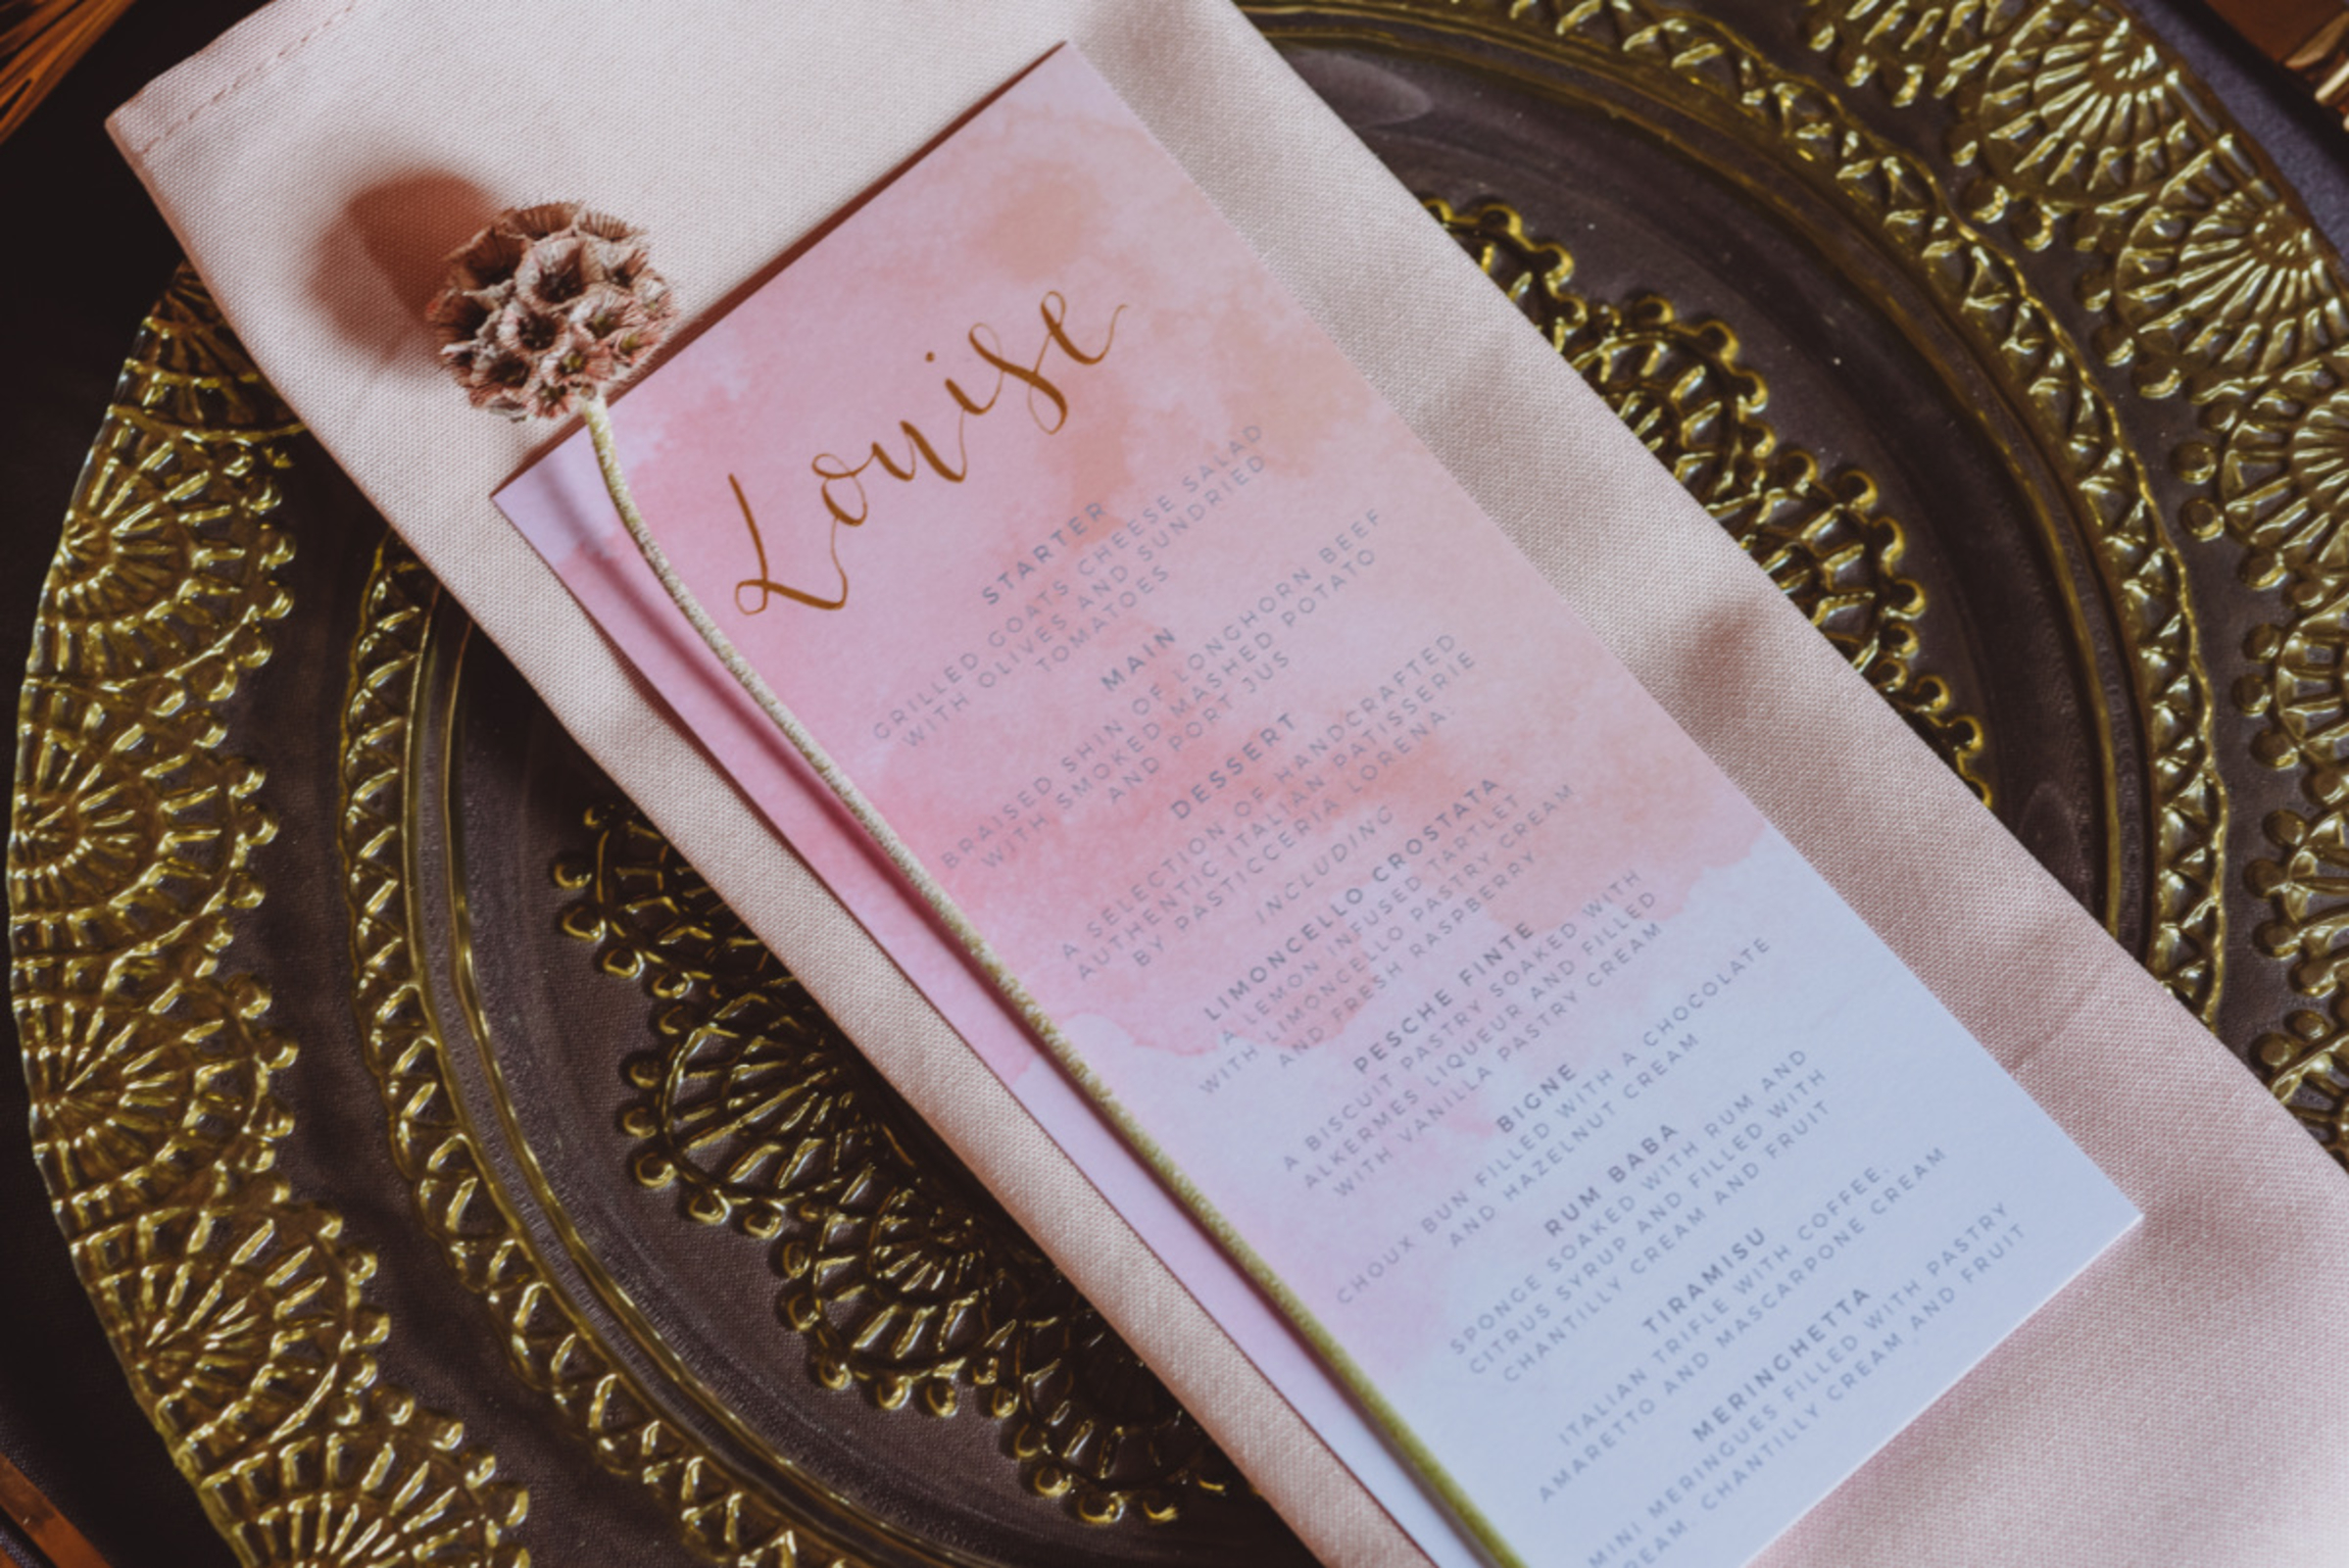 Louise
STARTER
GRILLED GOATS CHEESE SALAD
WITH OLIVES AND SUNDRIED
TOMATOES
MAIN
BRAISED SHIN OF LONGHORN BEEF
WITH SMOKED MASHED POTATO
AND PORT JUS
DESSERT
A SELECTION OF HANDCRAFTED
AUTHENTIC ITALIAN PATISSERIE
BY PASTICCERIA LORENA:
INCLUDING
LIMONCELLO CROSTATA
A LEMON INFUSED TARTLET
WITH LIMONCELLO PASTRY CREAM
AND FRESH RASPBERRY
PESCHE FINTE
A BISCUIT PASTRY SOAKED WITH
ALKERMES LIQUEUR AND FILLED
WITH VANILLA PASTRY CREAM
BIGNE
CHOUX BUN FILLED WITH A CHOCOLATE
AND HAZELNUT CREAM
RUM BABA
SPONGE SOAKED WITH RUM AND
CITRUS SYRUP AND FILLED WITH
CHANTILLY CREAM AND FRUIT
TIRAMISU
ITALIAN TRIFLE WITH COFFEE,
AMARETTO AND MASCARPONE CREAM
MERINGHETTA
MINI MERINGUES FILLED WITH PASTRY
CREAM, CHANTILLY CREAM AND FRUIT